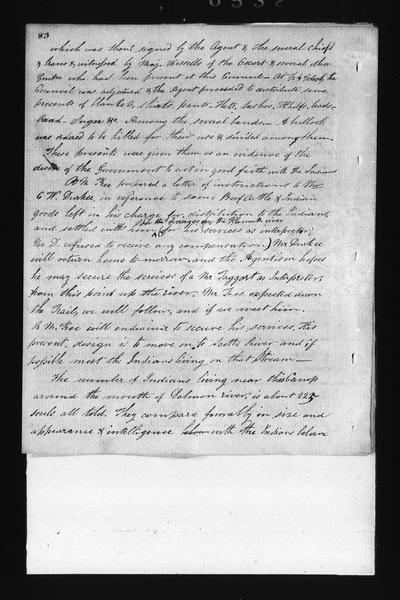 83
which was then signed by the Agent & the several chiefs
& braves & witnessed by Maj. Wessells of the Escort & several other
gents who had been present at this Council— At 1/2 4 o'clock the
Council was adjourned & the Agent proceeded to distribute some
presents of blankets, shirts, pants, Hats, Sashes, Hkfs, beads,
bread, Sugar &c. among the several bands— A bullock
was ordered to be killed for their use & divided among them.
These presents were given them as an evidence of the
desire of the Government to act in good faith with the Indians
R. McKee prepared a letter of instructions to Mr
C W. Durkee, in reference to some Beef Cattle & Indian
goods left in his charge for distribution to the Indians,
off the passage up the Klamath river
and settled with him for his services as interpreter,
(Mr D. refused to receive any compensation) Mr Durkee
will return home to morrow, and the Agent is in hopes
he may secure the services of a Mr Taggart as Interpreter,
from this point up the river. Mr T. is expected down
the Trail, we will follow, and if we meet him,
R. McKee will endeavor to secure his services. His
present design is to move on to Scotts River and if
possible meet the Indians living on that Stream—
The number of Indians living near this Camp
around the mouth of Salmon river, is about 225
souls all told. They compare favorably in size and
appearance & intelligence below with the Indians below